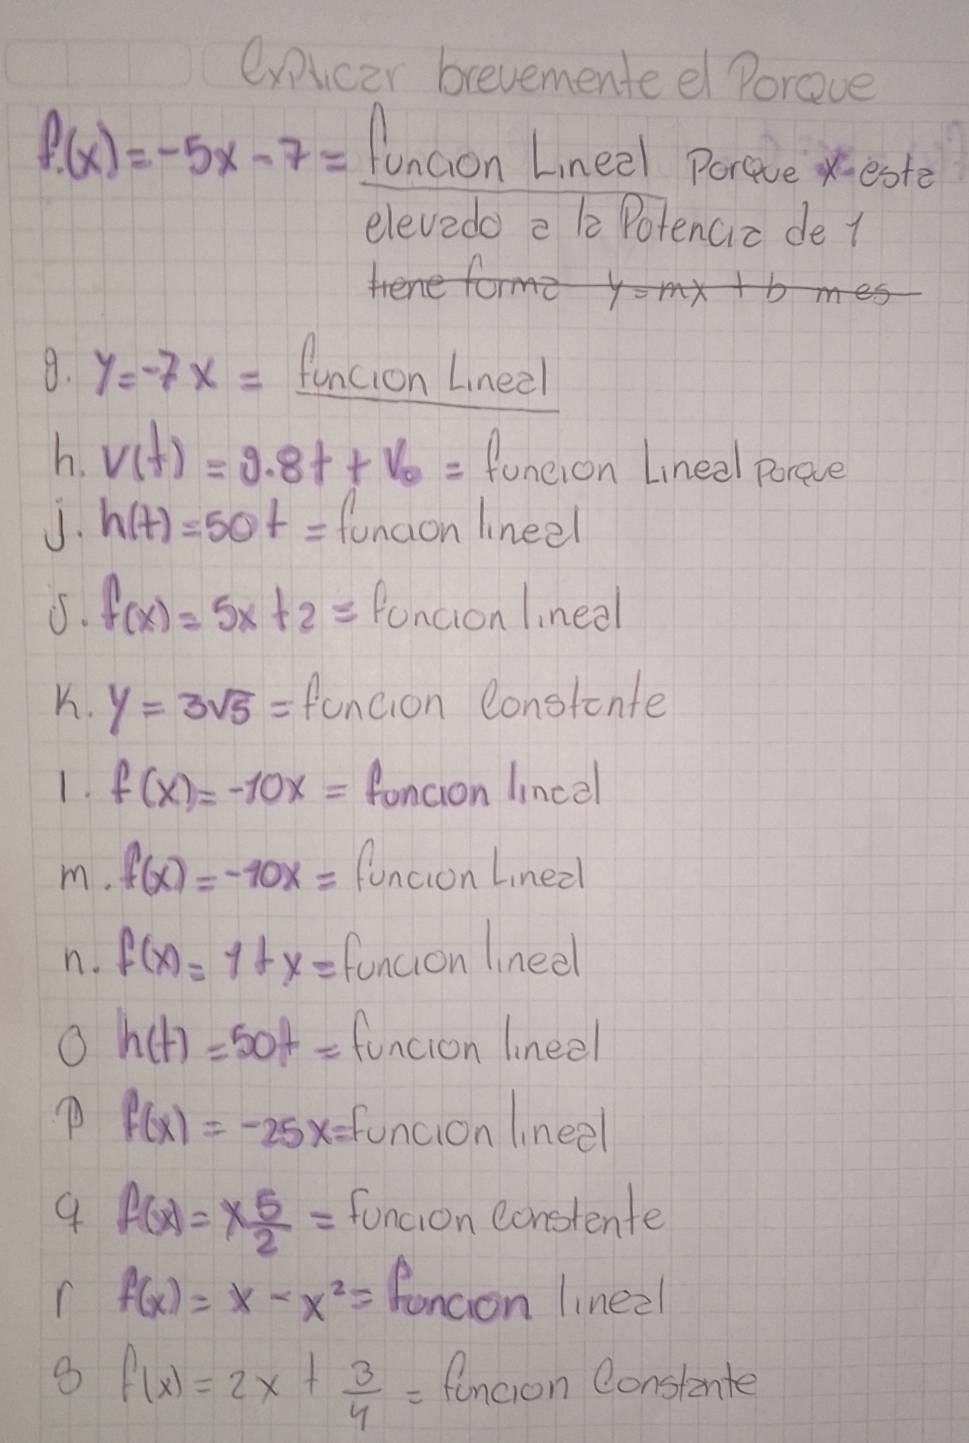 explicar brevemente el Porque
f.(x) = -5x - 7 = funcion Lineal Porque x esta
elevado a la Potencia de 1
tiene forma y = mx + b m es
g. y = -7x = funcion Lineal
h. v(t) = 9.8t + V₀ = funcion Lineal porque
j. h(t) = 50t = funcion lineal
j. f(x) = 5x + 2 = funcion lineal
K. y = 3√5 = funcion constante
l. f(x) = -10x = funcion lineal
m. f(x) = -10x = funcion Lineal
n. f(x) = 1 + x = funcion lineal
o h(t) = 50t = funcion lineal
p f(x) = -25x = funcion lineal
q f(x) = x 5/2 = funcion constante
r f(x) = x - x² = funcion lineal
s f(x) = 2x + 3/4 = funcion constante